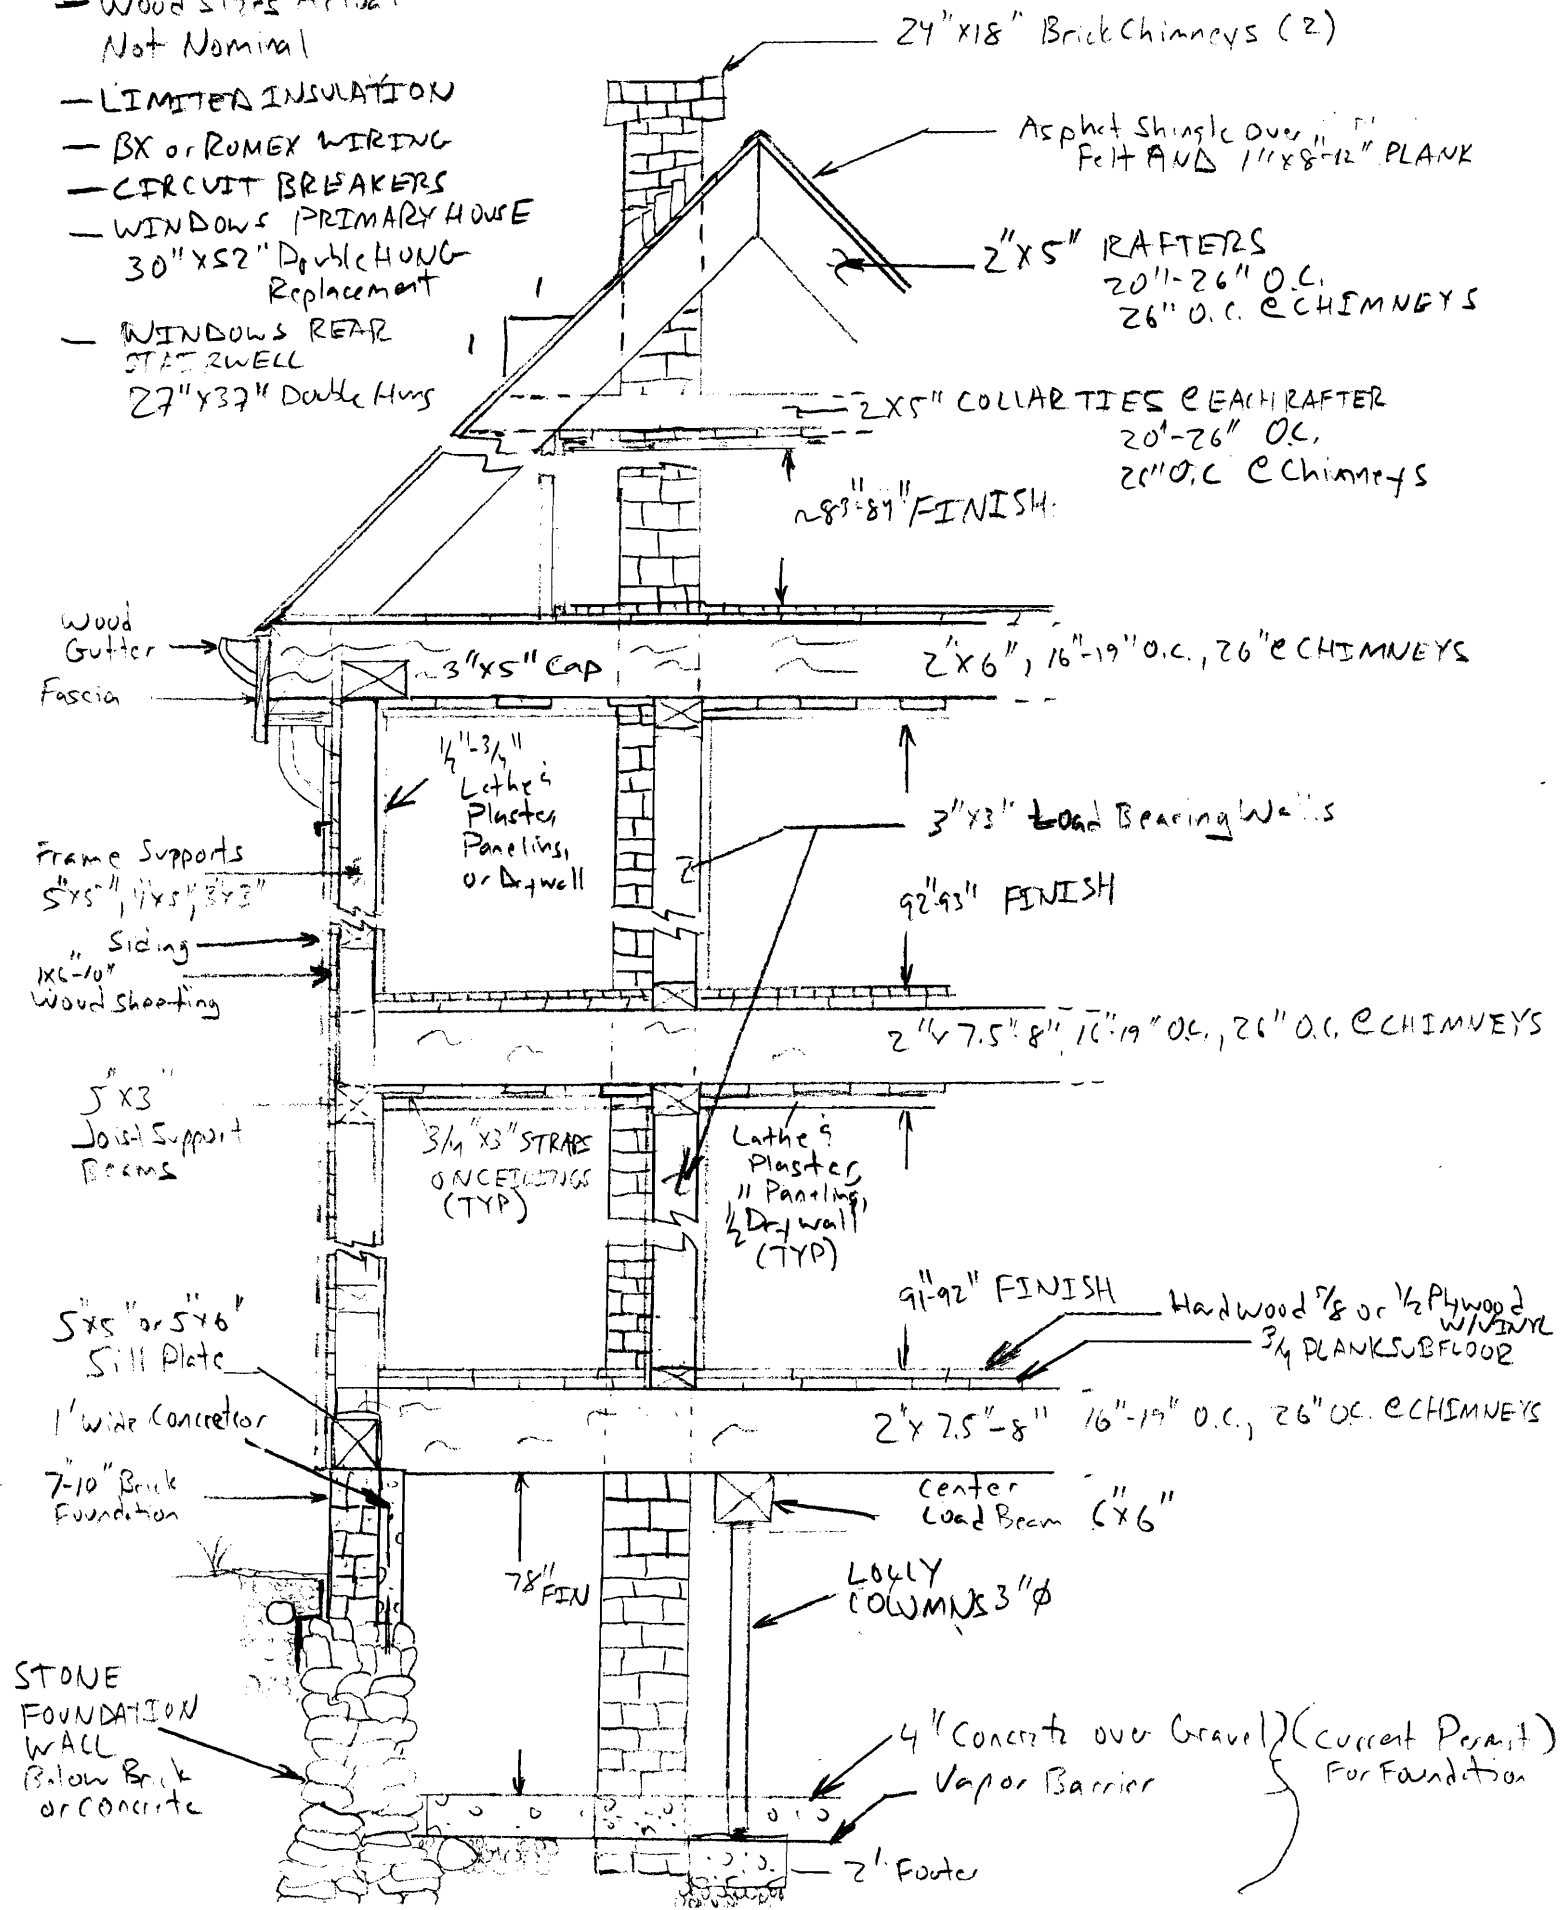 — Wood Sizes Actual
Not Nominal
— LIMITED INSULATION
— BX or ROMEX WIRING
— CIRCUIT BREAKERS
— WINDOWS PRIMARY HOUSE
30"X52" Double HUNG
Replacement
— WINDOWS REAR
STAIRWELL
27"X37" Double Hung
24"X18" Brick Chimneys (2)
Asphet Shingle over
Felt AND 1"X8"-12" PLANK
2"X5" RAFTERS
20"-26" O.C.
26" O.C. @ CHIMNEYS
1
1
2X5" COLLAR TIES @ EACH RAFTER
20"-26" O.C.
26" O.C @ Chimneys
~83"-84" FINISH
Wood
Gutter
Fascia
3"X5" Cap
2"X6", 16"-19" O.C., 26" @ CHIMNEYS
1/2"-3/4"
Lathe &
Plaster,
Paneling,
or Drywall
3"X3" Load Bearing Walls
Frame Supports
5"X5", 4"X5", 3"X3"
92"-93" FINISH
Siding
1X6-10"
Wood Sheeting
2"X 7.5"-8" 16"-19" O.C., 26" O.C. @ CHIMNEYS
5"X3"
Joist Support
Beams
3/4"X3" STRAPS
ON CEILINGS
(TYP)
Lathe &
Plaster,
" Paneling,
1/2 Drywall
(TYP)
91"-92" FINISH
Hardwood 7/8 or 1/2 Plywood
W/VINYL
3/4 PLANK SUBFLOOR
5"X5" or 5"X6"
Sill Plate
1' wide Concrete or
7"-10" Brick
Foundation
2"X 7.5"-8" 16"-19" O.C., 26" O.C. @ CHIMNEYS
Center
Load Beam 6"X6"
78" FIN
LOLLY
COLUMNS 3"Ø
STONE
FOUNDATION
WALL
Below Brick
or concrete
4" Concrete over Gravel (Current Permit)
Vapor Barrier
For Foundation
2' Footer